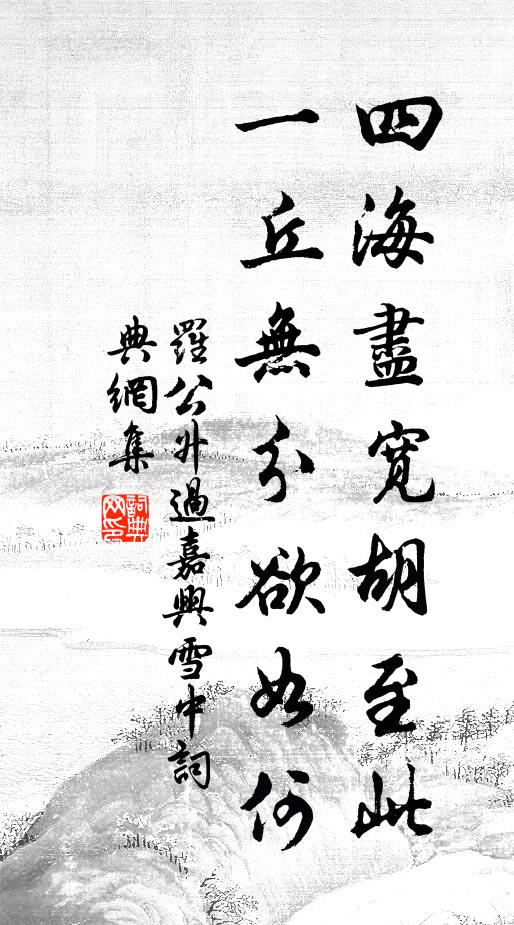 四海盡寬胡至此
一丘無分欲如何
羅公升過嘉興雪中詞
典網集
詞典網印